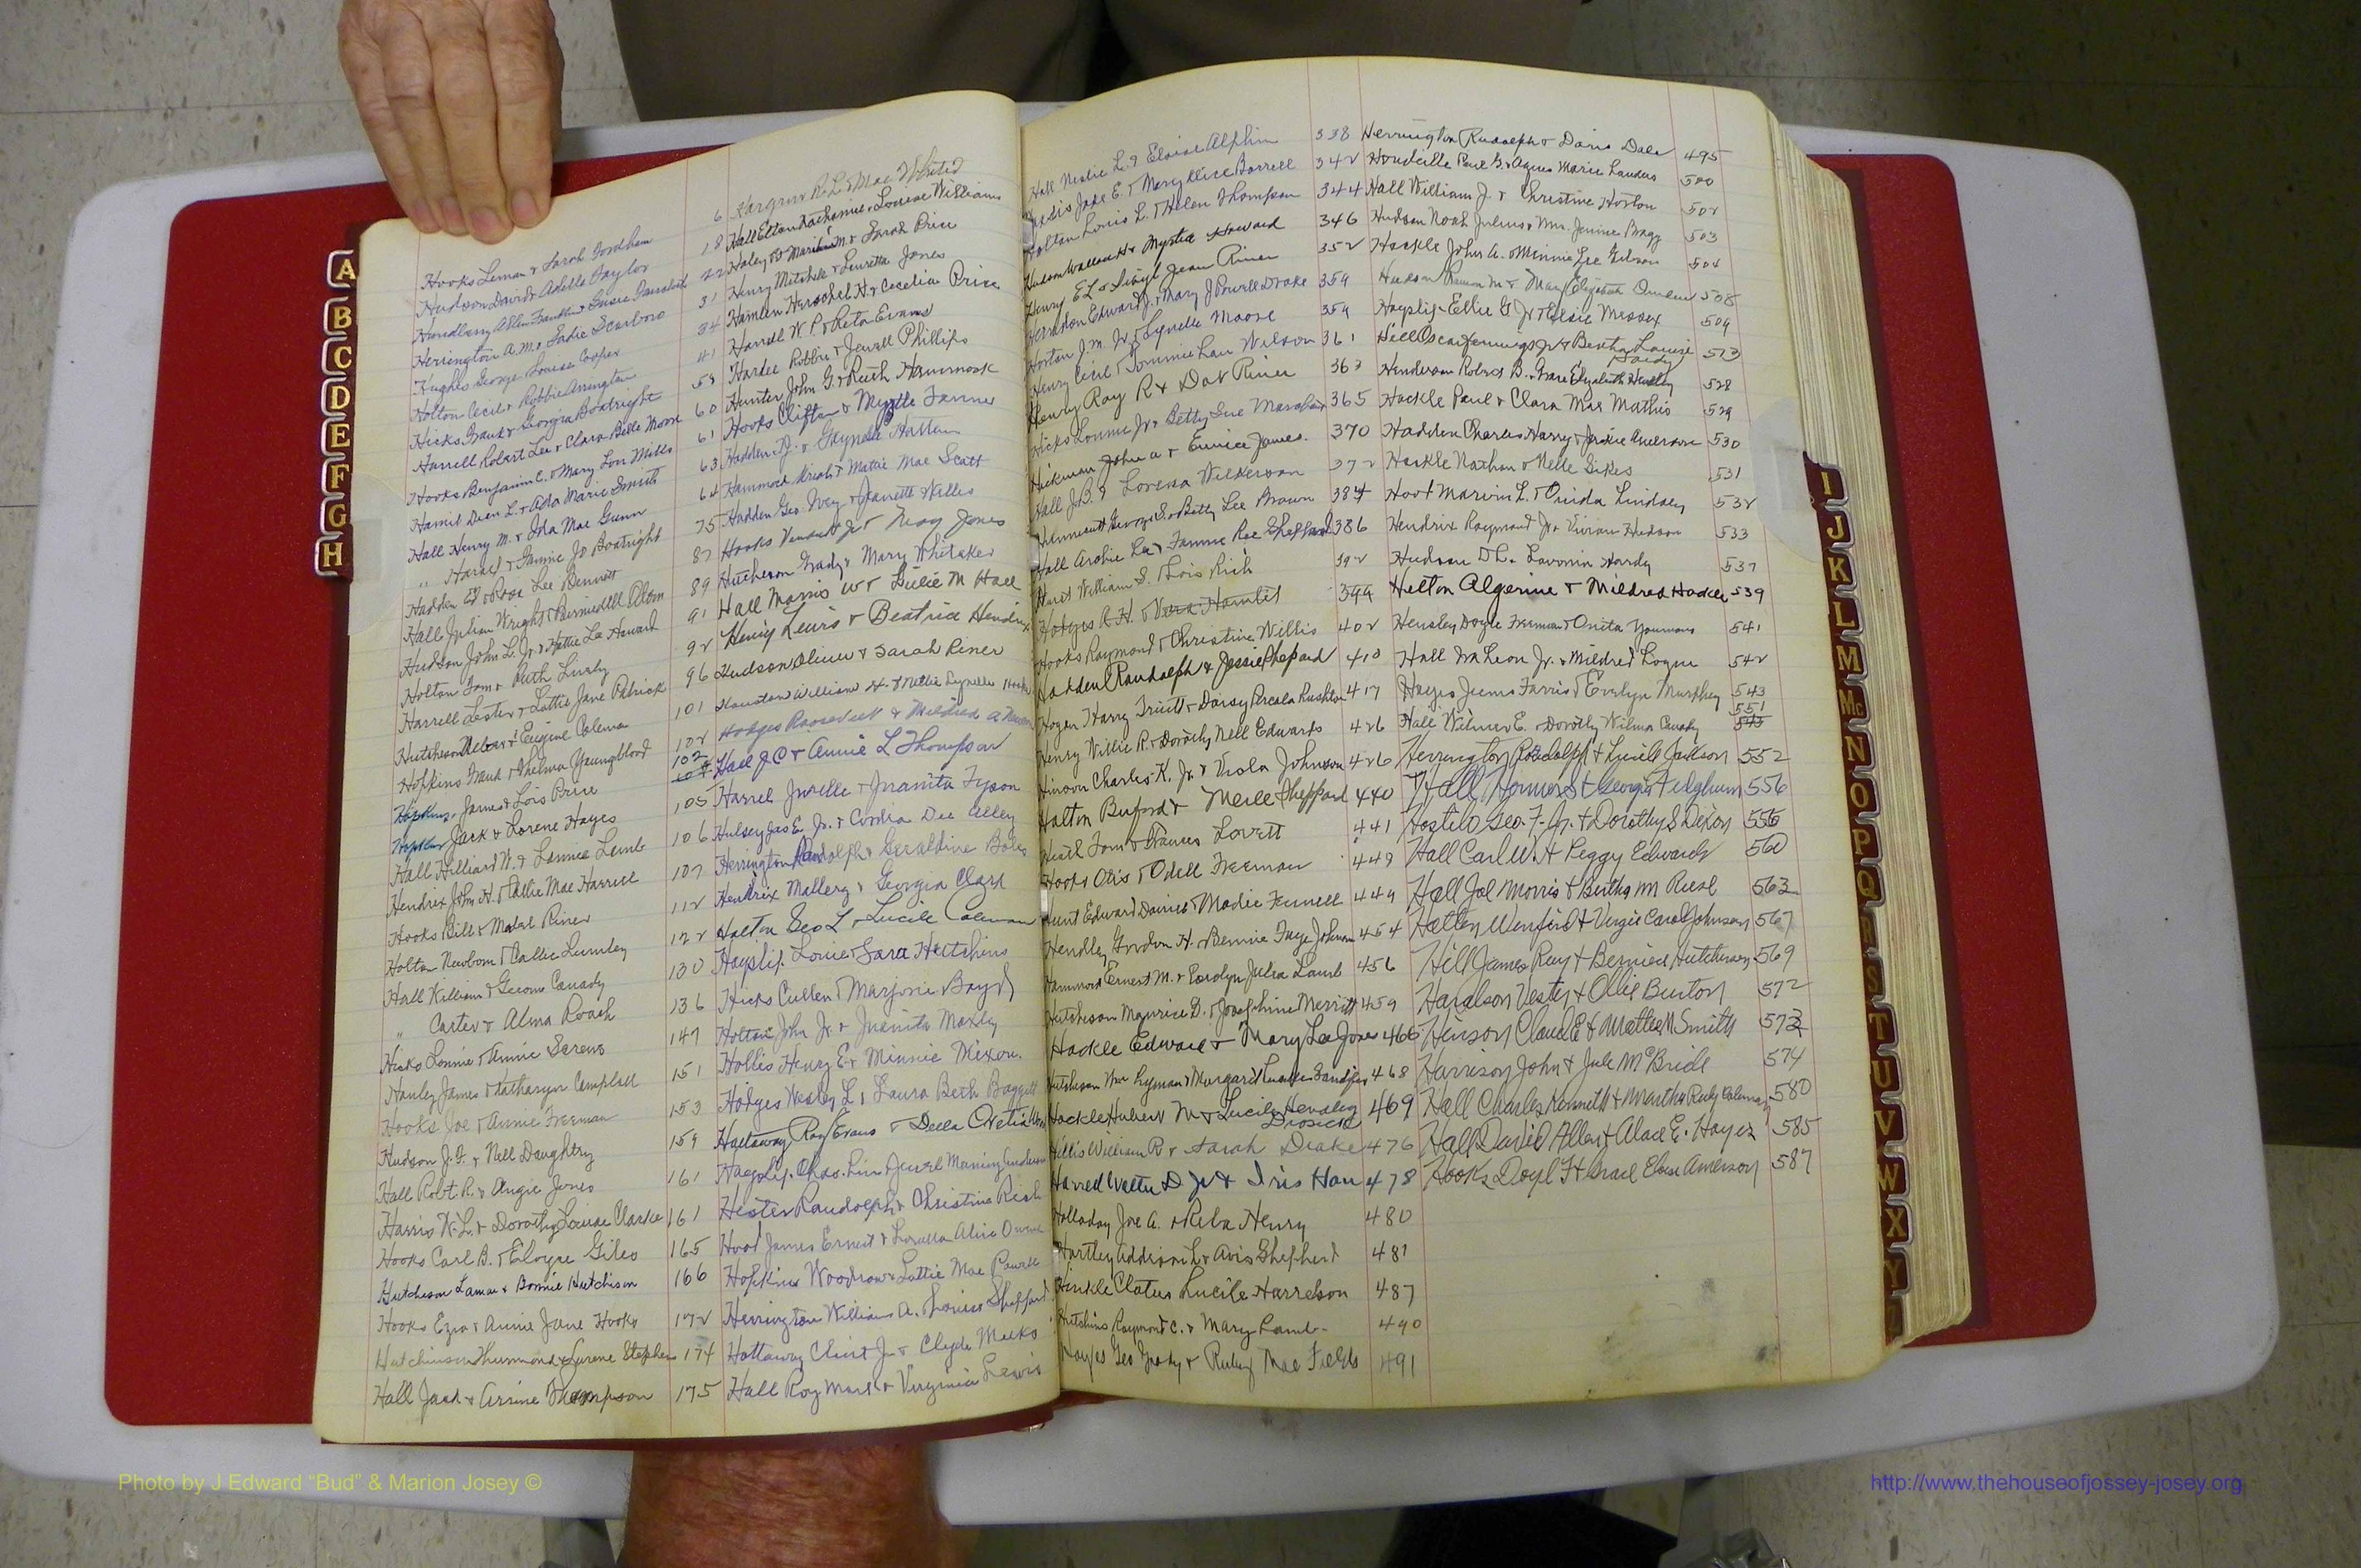 A
B
C
D
E
F
G
H
Hooks Leman & Sarah Fordham 6
Hudson David & Adelle Taylor 18
22
Herington A.M. & Sadie Scarboro 31
Hughes George & Louise Cooper 34
Holton Cecil & Robbie Arrington 41
Hicks Frank & Georgia Boatright 59
Harrell Robert Lee & Clara Belle Moore 60
Hooks Benjamin C. & Mary Lou Mills 61
Hamil Deen L. & Ada Marie Smith 63
Hall Henry M. & Ida Mae Gunn 64
" & Fannie Jo Boatright 75
Hadden Ed & Rosa Lee Bennett 87
Hall Julian Wright & 89
Hudson John L. Jr. & Hattie Lee Howard 91
Holton Tom & Ruth Lumly 92
Harrell Lester & Lottie Jane Patrick 96
Hutcheson & Eugine Coleman 101
Hopkins Frank & Thelma Youngblood 102
Hopkins James & Lois Price 102
Hopkins Jack & Lorene Hayes 105
Hall Hilliard W. & Lennie Lamb 106
Hendrix John H. & Callie Mae Harrell 107
Hooks Bill & Mabel Riner 112
Holton Newborn & Callie Lumley 122
Hall William & Canady 130
" Carter & Alma Roach 136
Hicks Lonnie & Annie Screws 147
Hanley James & Katharyn Campbell 151
Hooks Joe & Annie Freeman 153
Hudson J.F. & Nell Daughtry 159
Hall Robt. R. & Angie Jones 161
Harris W.L. & Dorothy Louise Clarke 161
Hooks Carl B. & Eloyse Giles 165
Hutcheson Lamar & Bonnie Hutchison 166
Hooks Ezra & Annie Jane Hooks 172
Hutchinson Thurmond & Lurene Stephens 174
Hall Jack & Arrine Thompson 175
Hargrove R.L. & Mae Whited
Hall Elton Nathaniel & Louise Williams
Haley & Sarah Price
Henry Mitchell & Lauretta Jones
Hamlin Herschel H. & Cecelia Price
Harrell W.P. & Reta Evans
Hardee Robbie & Jewell Phillips
Hunter John G. & Ruth Hammock
Hooks Clifton & Myrtle Tanner
Hadden & Glyndel Hattaway
Hammock & Mattie Mae Scott
Hadden Geo. Wey & Jeanette Willis
Hooks Jr & May Jones
Hutcheson Grady & Mary Whitaker
Hall Morris W & Lillie M Hall
Henry Lewis & Beatrice Hendrix
Hudson Oliver & Sarah Riner
Houston William H. & Nellie Lynelle Hooks
Hodges Roosevelt & Mildred A
Hall J C & Annie L Thompson
Harrel Jurelle & Juanita Tyson
Hulsey Jas E. Jr. & Cordia Dee Alley
Herrington Randolph & Geraldine
Hendrix Mallery & Georgia Clark
Holton Geo L & Lucile Coleman
Hayslip Louie & Sara Hutchins
Hicks Cullen & Marjorie Boyd
Holton John Jr. & Juanita Moxley
Hollis Henry E & Minnie Mixon
Hodges Wesley L & Laura Beth Baggett
Hattaway Ray Evans & Della
Hayslip Chas. Lin & Jewel
Hester Randolph & Christine Rich
Hood James Ernest & Louella Alice
Hopkins Woodrow & Lottie Mae Powell
Herrington William A. & Louise Sheppard
Hattaway Clint Jr & Clyde Meeks
Hall Roy Mark & Virginia Lewis
Hall Neslie L. & Eloise Alphin 338
Jake E. & Mary Alice Barrell 342
Holton Louis L. & Helen Thompson 344
Hudson Wallace H & Mystie Howard 346
Henry E L & Sibyl Jean Riner 352
Herndon Edward J. & Mary J Powell Drake 359
Horton J.M. Jr & Lynelle Moore 359
Henry Cecil & Tommie Lou Wilson 361
Henry Roy R & Dot Riner 363
Hicks Lonnie Jr & Betty Sue 365
Hickman John A & Eunice James 370
Hall J.B. & Lorena Wilkerson 372
George S. & Betty Lee Brown 384
Hall Archie Lee & Fannie Rae Sheppard 386
Hurst William S. & Lois Rich 392
Hodges R.H. & Vera Hamlet 399
Hooks Raymond & Christine Willis 402
Hadden Randolph & Jessie Shepard 410
Hogan Harry Truitt & Daisy Arcola Rushton 417
Henry Willie R. & Dorothy Nell Edwards 426
Hinson Charles K. Jr. & Viola Johnson 426
Holton Buford & Merle Sheppard 440
Tom & Frances Lovett 441
Hooks Otis & Odell Freeman 449
Hunt Edward Daniel & Madie Fennell 449
Hendley Gordon H. & Bennie Faye Johnson 454
Hammock Ernest M. & Carolyn Julia Lamb 456
Hutcheson Maurice D. & Josephine Merritt 459
Hackle Edward & Mary Lee Jones 466
Hutcheson Wm Lyman & Margaret 468
Hackle Hubert M & Lucile Hendley Drosick 469
Hollis William R & Sarah Drake 476
Harrell Walter D Jr & Iris Hall 478
Holladay Joe A. & Reba Henry 480
Hartley Addison L & Avis Shepherd 481
Hinkle Clatus & Lucile Harrelson 487
Hutchins Raymond C. & Mary Lamb 490
Hayes Geo Grady & Ruby Mae Fields 491
Herrington Rudolph & Doris Dale 495
Paul G. & Agnes Marie Landers 500
Hall William J. & Christine Horton 502
Hudson Noah Julius & Mrs. Jennie Bragg 503
Hackle John A. & Minnie Lee Gibson 504
Hudson M & Mary Elizabeth 508
Hayslip Ellie G Jr & Elsie Messex 509
Hill Oscar Jennings Jr & Bertha Louise 513
Henderson Robert B. & Grace Elizabeth Hensley 528
Hackle Paul & Clara Mae Mathis 529
Hadden Charles Harry & Jackie Anderson 530
Hackle Nathan & Nelle Sikes 531
Hoot Marvin L. & Onida Lindsey 532
Hendrix Raymond Jr. & Vivian Hudson 533
Hudson D L. & Lavonia Hardy 537
Helton Algerine & Mildred Hackle 539
Hensley Doyle Freeman & Onita Youmans 541
Hall Wm Leon Jr. & Mildred Logue 542
Hayes James Farris & Evelyn Murphey 543
551
Hall Wilmer E. & Dorothy Wilma Canady 545
Herrington Rudolph & Lucile Jackson 552
Hall Homer S & Georgia Fulghum 556
Hostilo Geo. F. Jr. & Dorothy S Dixon 556
Hall Carl W. & Peggy Edwards 560
Hall Joe Morris & Bertha M Reese 563
Hatley Winford & Vergie Carol Johnson 567
Hill James Ray & Bernice Hutcheson 569
Haralson Vester & Ollie Burton 572
Hinson Claud E & Mattie M Smith 573
Harrison John & Jule McBride 574
Hall Charles Kenneth & Martha Ruby Coleman 580
Hall David Allen & Alace E. Hayes 585
Hooks Doyl F & Grace Eloise Amerson 587
I
J
K
L
M
Mc
N
O
P
Q
R
S
T
U
V
W
X
Y
Photo by J Edward “Bud” & Marion Josey ©
http://www.thehouseofjossey-josey.org